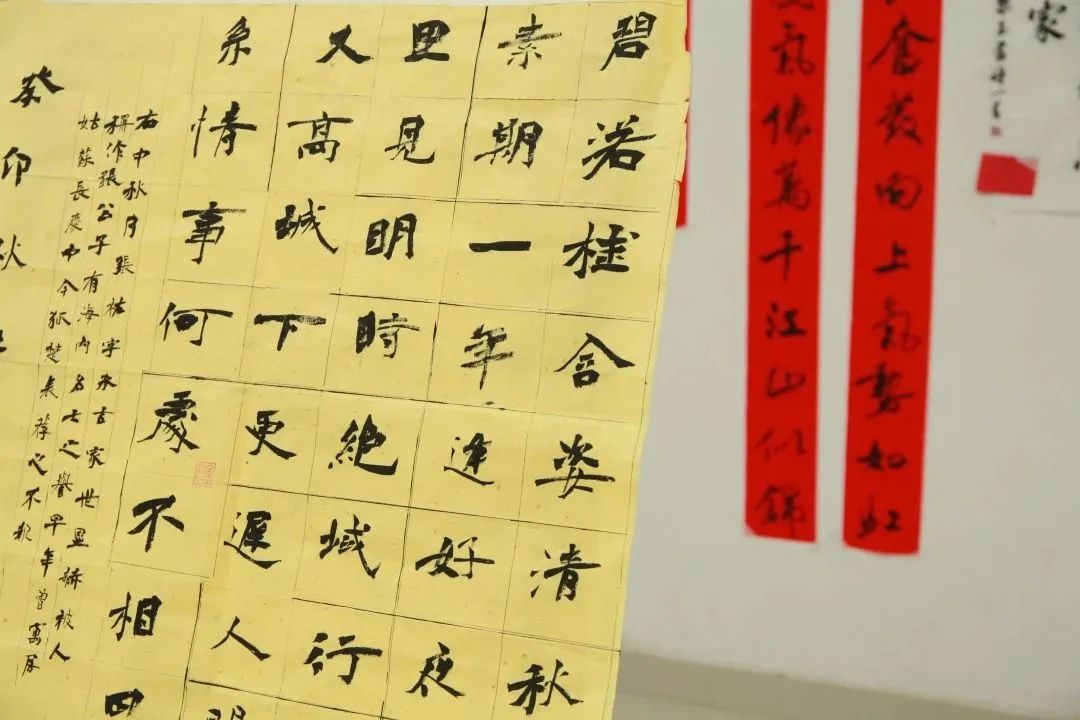 家
奮發向上氣勢如虹
氣像萬千江山似錦
碧落桂含姿清秋
素期一年逢好夜
里見明時絕域行
久高城下更遲人
系情事何處不相
右中秋月張祜字承吉家世顯赫被人
稱作張公子有海內名士之譽早年曾寓居
姑蘇長慶中令狐楚表薦之不報
癸卯秋